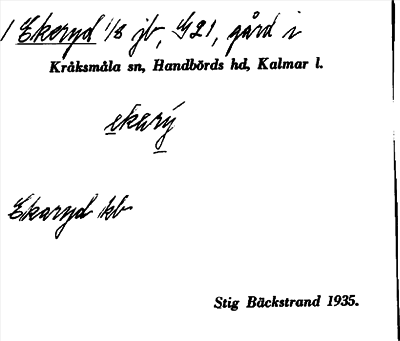 1 Ekeryd 1/8 jb, 21, gård i
Kråksmåla sn, Handbörds hd, Kalmar l.
ekarý
Ekaryd kb
Stig Bäckstrand 1935.